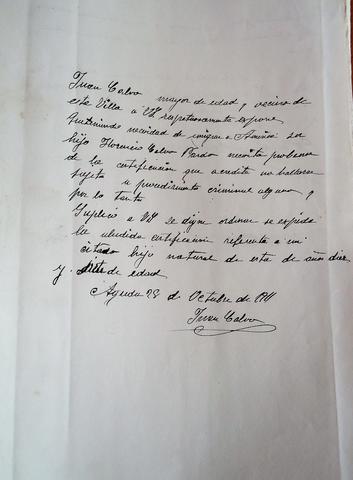 Juan Calvo mayor de edad, y vecino de
esta Villa a VS respetuosamente expone
necesidad de emigrar a America su
hijo Florencio Calvo Pardo necesita proveerse
de la certificación que acredite no hallarse
sujeto a procedimiento criminal alguno, y
por lo tanto
Suplico a VS se digne ordenar se expida
la aludida certificación referente a mi
citado hijo natural de esta de años diez
y siete de edad
Agreda 23 de Octubre de 1911
Juan Calvo